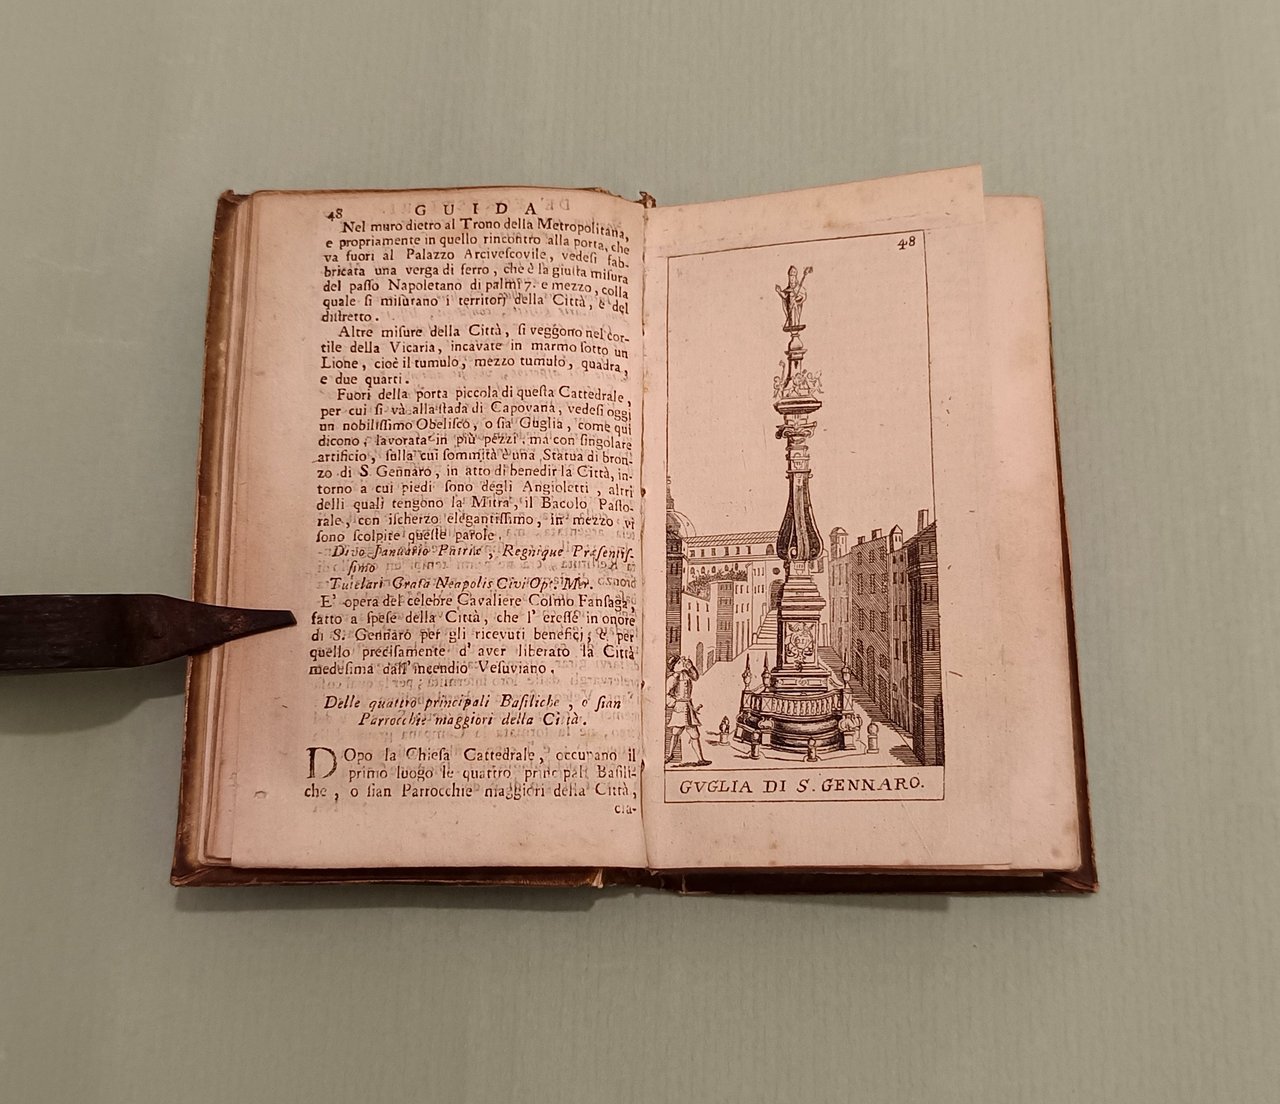 48 GUIDA
Nel muro dietro al Trono della Metropolitana,
e propriamente in quello rincontro alla porta, che
va fuori al Palazzo Arcivescovile, vedesi fab-
bricata una verga di ferro, ch'è la giusta misura
del passo Napoletano di palmi 7. e mezzo, colla
quale si misurano i territorj della Città, e del
distretto.
Altre misure della Città, si veggono nel cor-
tile della Vicaria, incavate in marmo sotto un
Lione, cioè il tumulo, mezzo tumulo, quadra,
e due quarti.
Fuori della porta piccola di questa Cattedrale,
per cui si và alla stada di Capovana, vedesi oggi
un nobilissimo Obelisco, o sia Guglia, come qui
dicono, lavorata in più pezzi, ma con singolare
artificio, sulla cui sommità è una Statua di bron-
zo di S. Gennaro, in atto di benedir la Città, in-
torno a cui piedi sono degli Angioletti, altri
delli quali tengono la Mitra, il Bacolo Pasto-
rale, con ischerzo elegantissimo, in mezzo vi
sono scolpite queste parole.
Divo Januario Patriæ, Regnique Præsentis-
simo
Tutelari Grata Neapolis Civi Opt. Mer.
E' opera del celebre Cavaliere Cosmo Fansaga,
fatto a spese della Città, che l'eresse in onore
di S. Gennaro per gli ricevuti benefici; e per
quello precisamente d'aver liberato la Città
medesima dall'incendio Vesuviano.
Delle quattro principali Basiliche, o sian
Parrocchie maggiori della Città.
DOpo la Chiesa Cattedrale, occupano il
primo luogo le quattro principali Basili-
che, o sian Parrocchie maggiori della Città,
cia-
48
GVGLIA DI S. GENNARO.